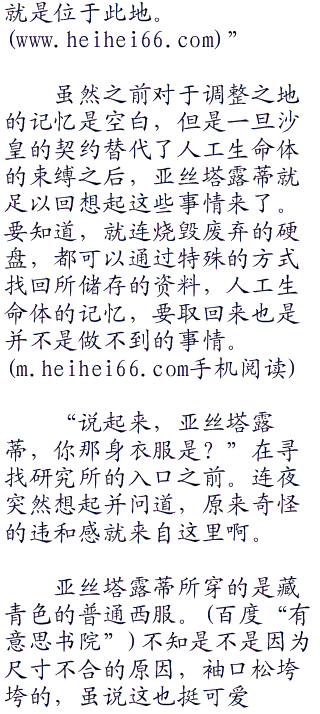 就是位于此地。
(www.heihei66.com)”
虽然之前对于调整之地
的记忆是空白，但是一旦沙
皇的契约替代了人工生命体
的束缚之后，亚丝塔露蒂就
足以回想起这些事情来了。
要知道，就连烧毁废弃的硬
盘，都可以通过特殊的方式
找回所储存的资料，人工生
命体的记忆，要取回来也是
并不是做不到的事情。
(m.heihei66.com手机阅读)
“说起来，亚丝塔露
蒂，你那身衣服是？”在寻
找研究所的入口之前。连夜
突然想起并问道，原来奇怪
的违和感就来自这里啊。
亚丝塔露蒂所穿的是藏
青色的普通西服。(百度“有
意思书院”)不知是不是因为
尺寸不合的原因，袖口松垮
垮的，虽说这也挺可爱